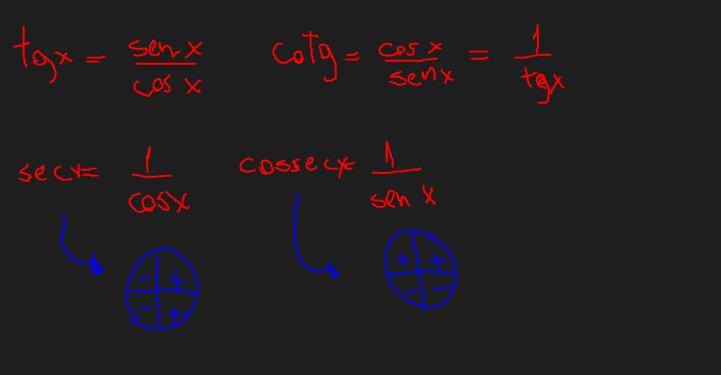 tgx = sen x / cos x    cotg = cos x / sen x = 1 / tgx
secx = 1 / cosx    cossecx = 1 / sen x
- +    + +
- +    - -